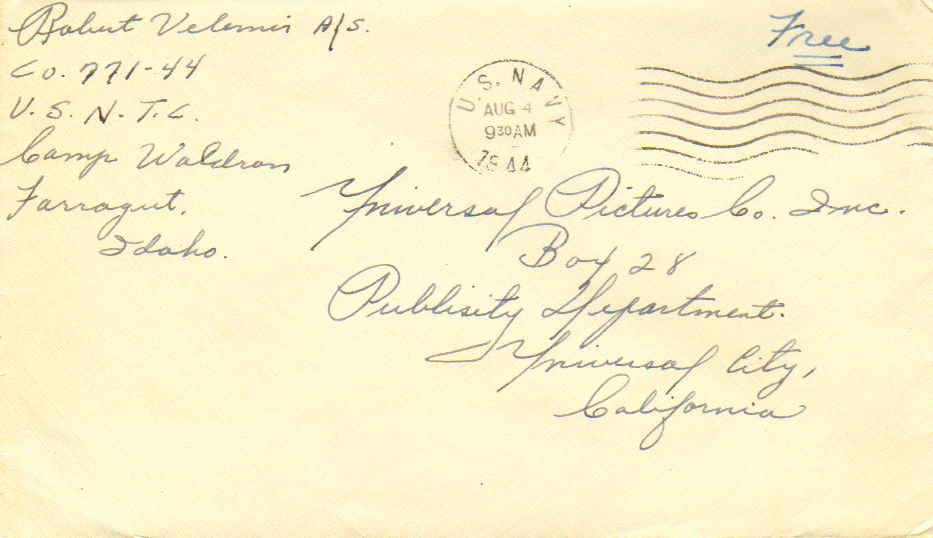 Robert Velemir A/S.
Co. 771-44
U. S. N. T. C.
Camp Waldron
Farragut.
Idaho.
Free
U. S. NAVY
AUG 4
9 30 AM
1944
Universal Pictures Co. Inc.
Box 28
Publisity Department.
Universal City,
California